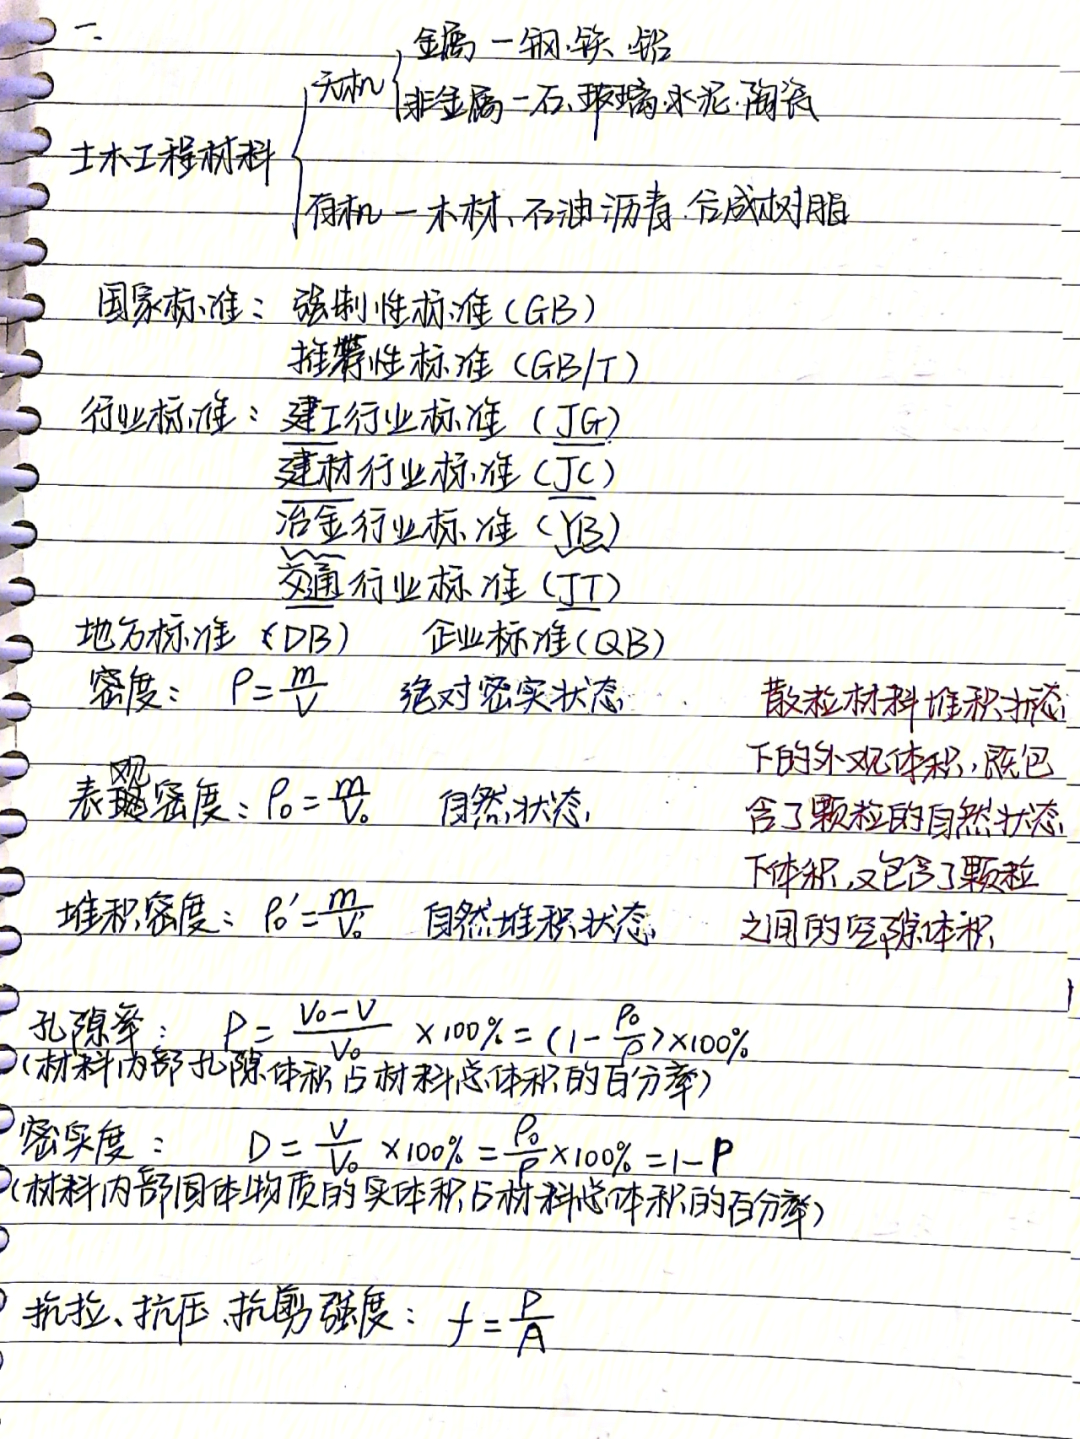 一.
金属－钢.铁.铝
无机
非金属－石、玻璃.水泥.陶瓷
土木工程材料
有机－木材、石油沥青.合成树脂
国家标准：强制性标准(GB)
推荐性标准(GB/T)
行业标准：建工行业标准(JG)
建材行业标准(JC)
冶金行业标准(YB)
交通行业标准(JT)
地方标准(DB) 企业标准(QB)
密度：ρ=m/V 绝对密实状态
表观密度：ρ₀=m/V₀ 自然状态
堆积密度：ρ₀'=m/V₀' 自然堆积状态
散粒材料堆积状态
下的外观体积,既包
含了颗粒的自然状态
下体积,又包含了颗粒
之间的空隙体积
孔隙率：P=(V₀-V)/V₀ ×100%=(1-ρ₀/ρ)×100%
(材料内部孔隙体积占材料总体积的百分率)
密实度：D=V/V₀ ×100%=ρ₀/ρ×100%=1-P
(材料内部固体物质的实体积占材料总体积的百分率)
抗拉、抗压、抗剪强度：f=P/A